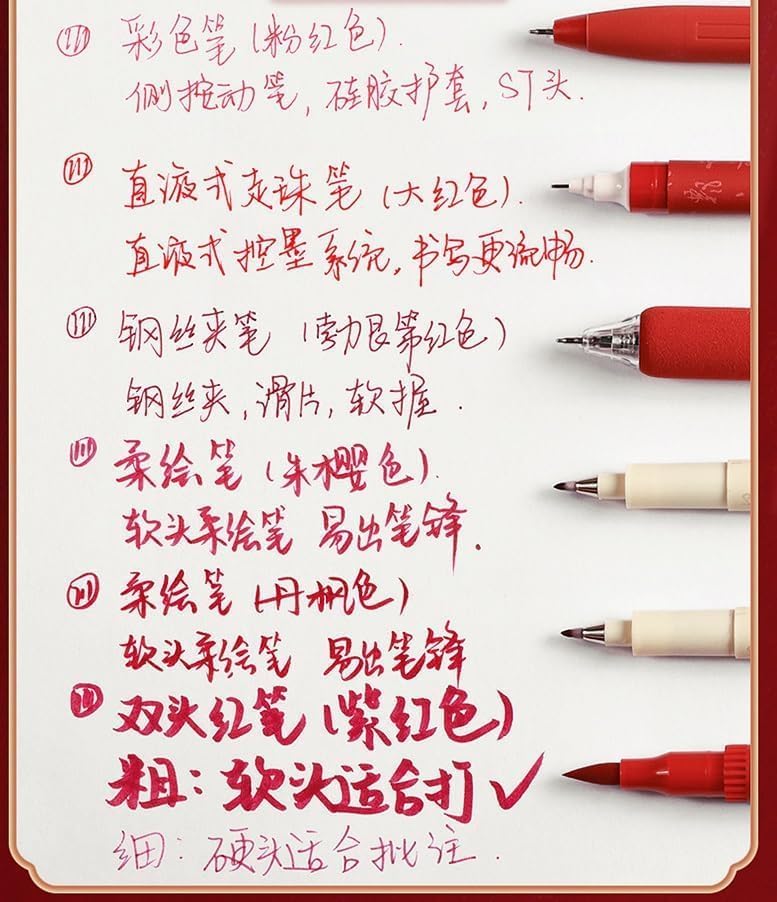 彩色笔(粉红色).
侧按动笔,硅胶护套,ST头.
直液式走珠笔(大红色).
直液式控墨系统,书写更流畅.
钢丝夹笔(勃艮第红色)
钢丝夹,滑片,软握.
柔绘笔(朱樱色).
软头柔绘笔 易出笔锋.
柔绘笔(丹枫色)
软头柔绘笔 易出笔锋
双头红笔(紫红色)
粗:软头适合打✓
细:硬头适合批注.